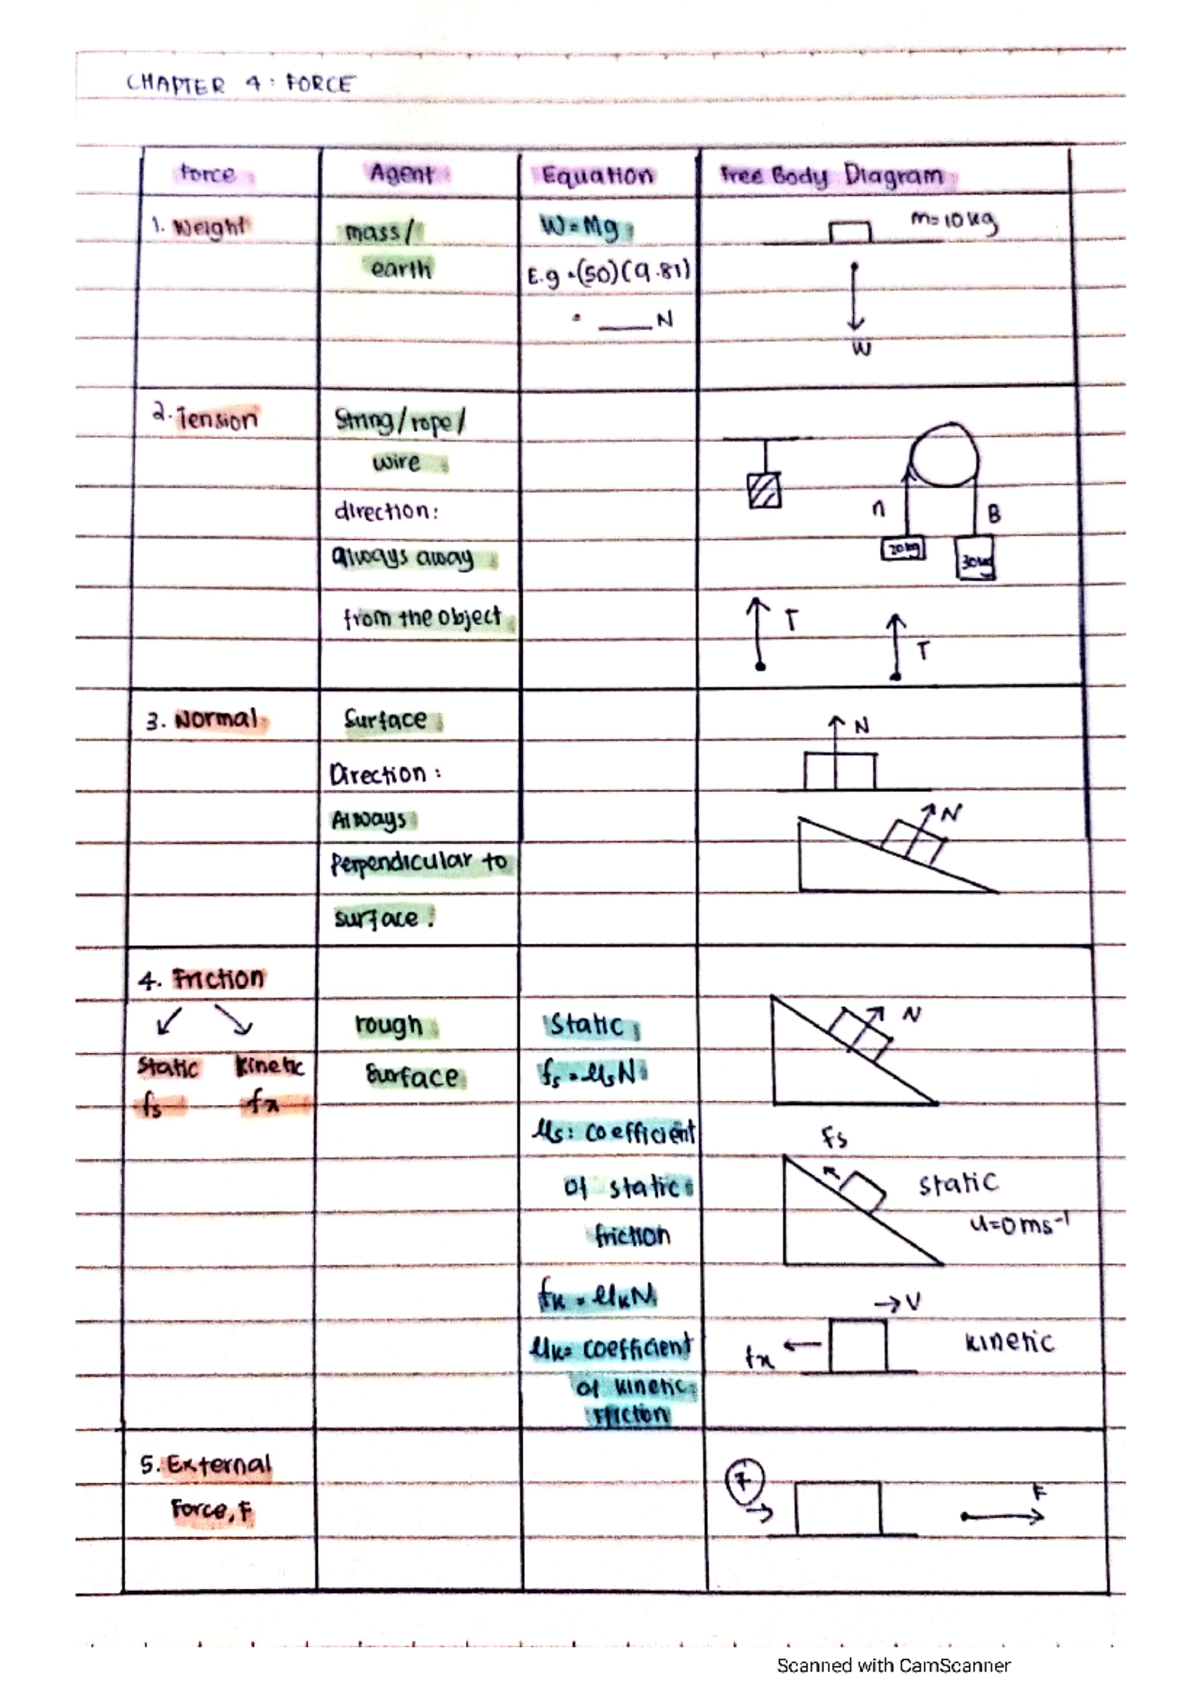 CHAPTER 4: FORCE
Force Agent Equation Free Body Diagram
1. Weight
mass/
earth
W = Mg
E.g = (50)(9.81)
= ____ N
m = 10 kg
W
2. Tension
String/rope/
wire
direction:
always away
from the object
A B
20kg
30kg
T
T
3. Normal
Surface
Direction:
Always
Perpendicular to
surface.
N
N
4. Friction
Static Kinetic
fs fk
rough
Surface
Static
fs = μsN
μs: coefficient
of static
friction
fk = μkN
μk = coefficient
of kinetic
friction
N
Fs
static
u=0ms-1
→V
fk
kinetic
5. External
Force, F
F
F
Scanned with CamScanner